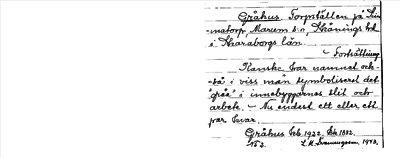 Gråhus. Torpställen på Sim-
matorp, Marum s:n, Skånings hd
i Skaraborgs län.
- Fortsättning
Kanske har namnet ock-
-så i viss mån symboliserat det
"grå" i innebyggarnas slit och
arbete. - Nu endast ett eller ett
par kvar.
Gråhus beb. 1922. Etc 1882.
No 3. L.M. Svenungsson, 1973.